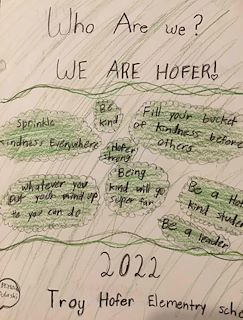 Who Are we?
WE ARE HOFER!
Be
kind
Sprinkle
kindness Everywhere
Fill your bucket
of kindness before
others
Hofer
strong
whatever you
put your mind up
to you can do
Being
kind will go
super far
Be a
kind student
Be a leader
2022
Troy Hofer Elementry